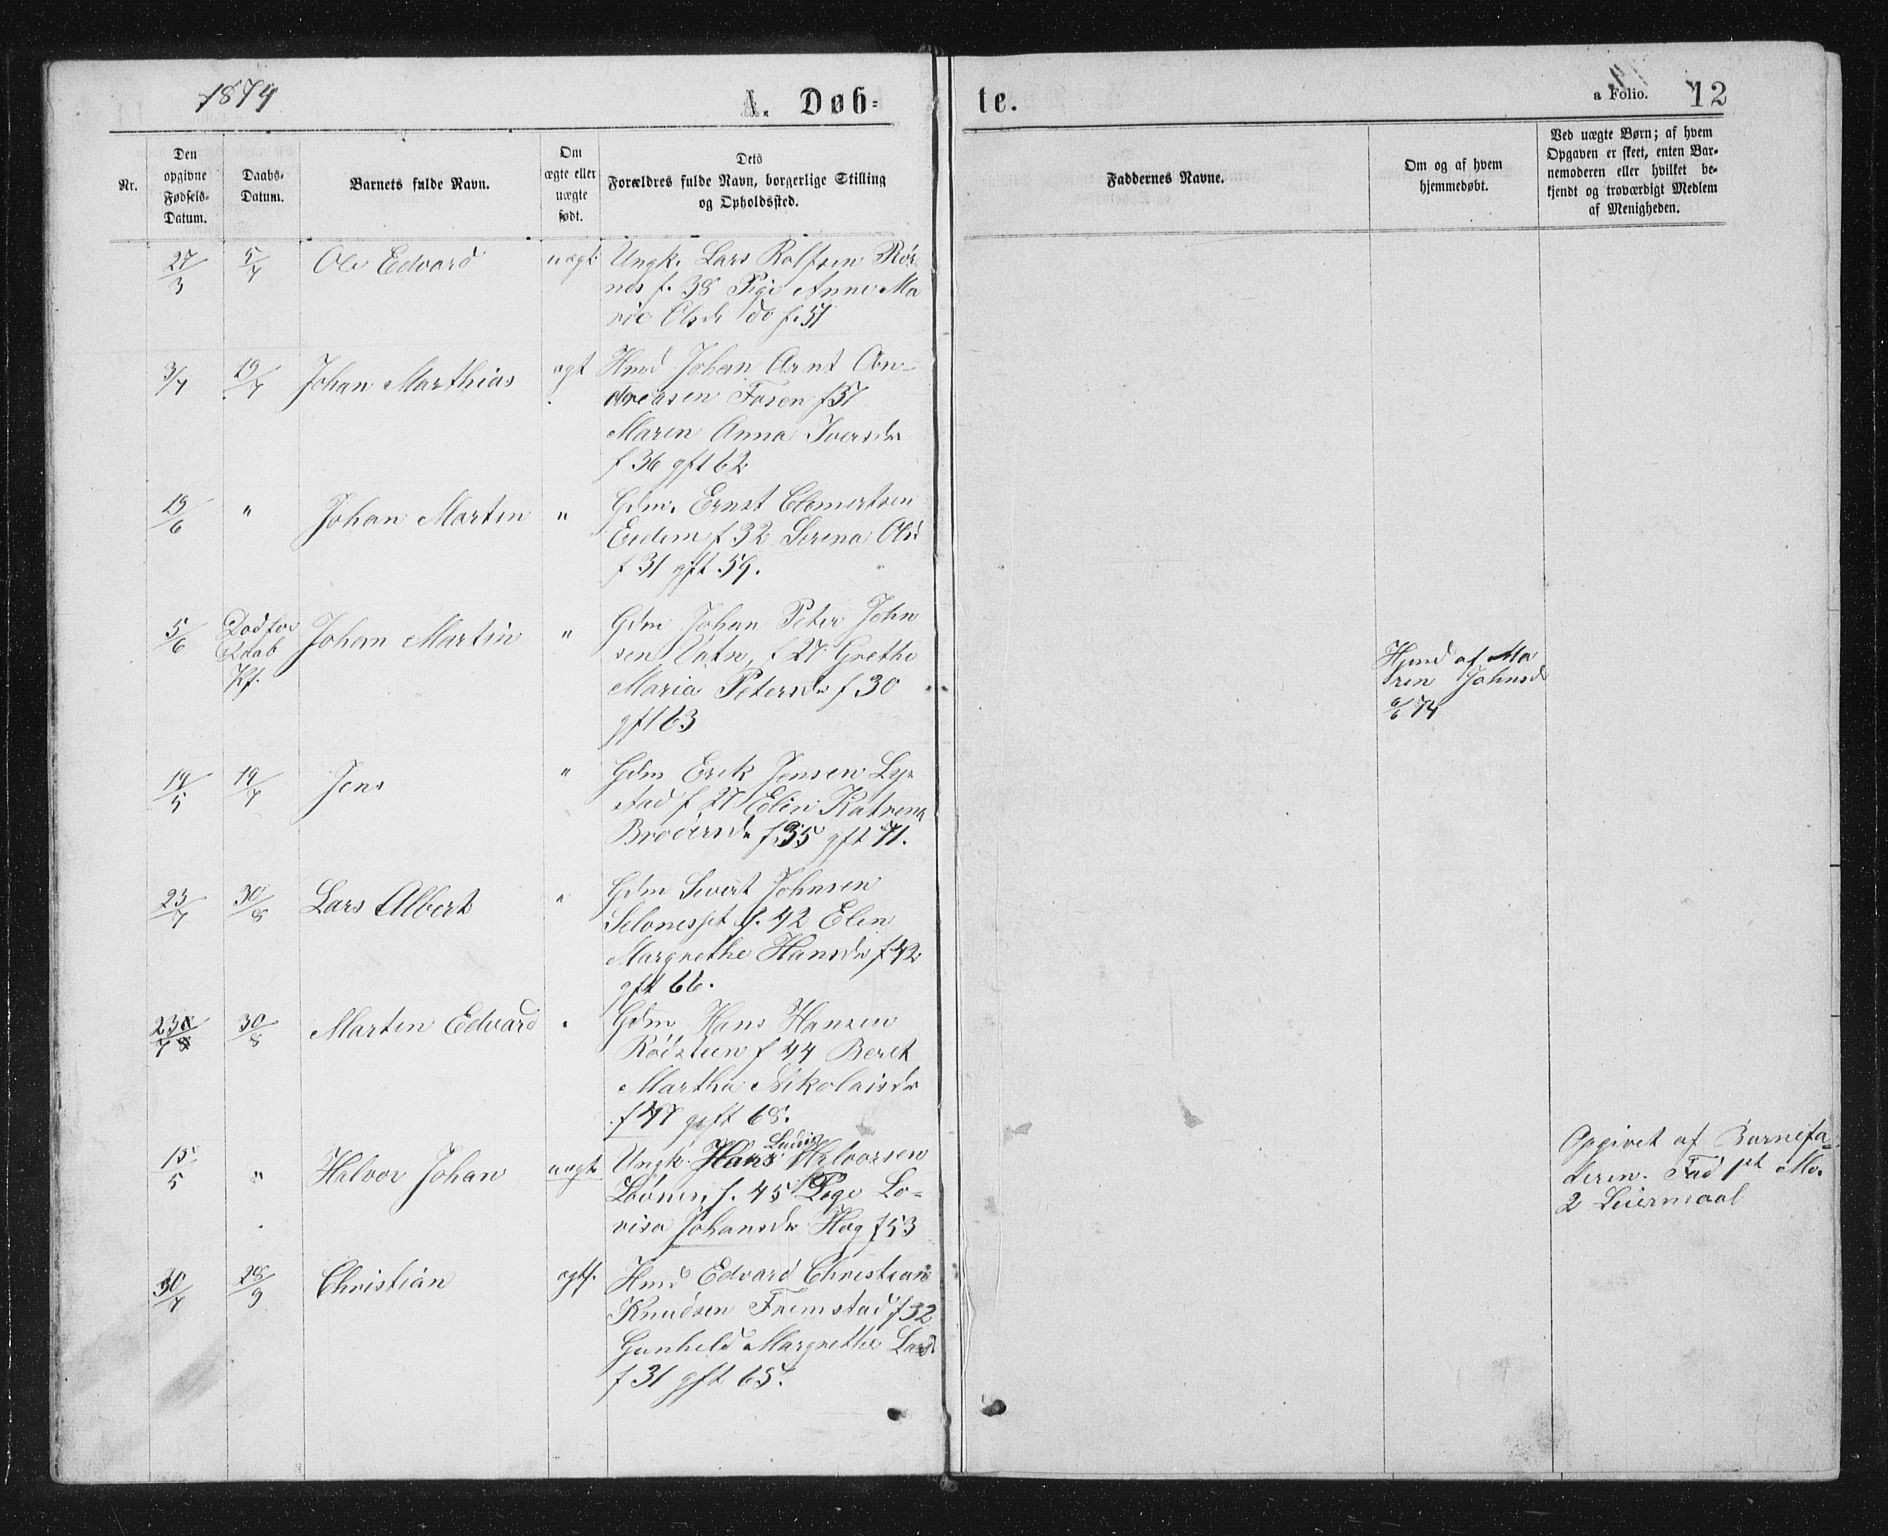 1874
A. Døb-
te.
a Folio. 12
Nr.
Den opgivne Fødsels-Datum.
Daabs-Datum.
Barnets fulde Navn.
Om ægte eller uægte født.
Dets Forældres fulde Navn, borgerlige Stilling og Opholdssted.
Faddernes Navne.
Om og af hvem hjemmedøbt.
Ved uægte Børn; af hvem Opgaven er skeet, enten Barnemoderen eller hvilket bekjendt og troværdigt Medlem af Menigheden.
27/3 5/7 Ole Edvard uægt. Ungk. Lars Rolfsen Rør
nes f. 38 Pige Anne Ma
rie Olsdr do f. 51
3/7 19/7 Johan Marthias ægt Hmd Johan Arnt An-
dreasen Fosen f 37
Maren Anna Iversdr
f 36 gft 62
19/6 " Johan Martin " Gdm. Ernst Clemertsen
Eidem f 32 Serena Olsd
f 31 gft 59.
5/6 Død før Johan Martin " Gdm Johan Peter John
Daab sen Vatn, f 27 Grethe
Kf. Maria Petersdr f 30
gft 63
Hjmd af Ma
ren Johnsd
6/6 74
19/5 19/7 Jens " Gdm Erik Jensen Lyr
stad f 27 Elin Katrina
Brodersdr f 35 gft 71.
23/7 30/8 Lars Albert " Gdm Sivert Johnsen
Selvnesset f. 42 Elen
Margrethe Hansdr f 42
gft 66.
23/7 30/8 Martin Edvard " Gdm Hans Hansen
Rødsteen f 44 Beret
Martha Nikolaisdr
f 47 gft 68.
15/5 " Halvor Johan uægt Ungk. Hans Ludvig Halvorsen
f. 45 Pige Lo-
visa Johansdr Hog f 53
Opgivet af Barnefa-
deren. Fad 1st Mo.
2 Leiermaal
30/7 28/9 Christian ægtf. Hmd Edvard Christian
Knudsen Fremstad f 32
Gunhild Margrethe Larsd
f 31 gft 65.